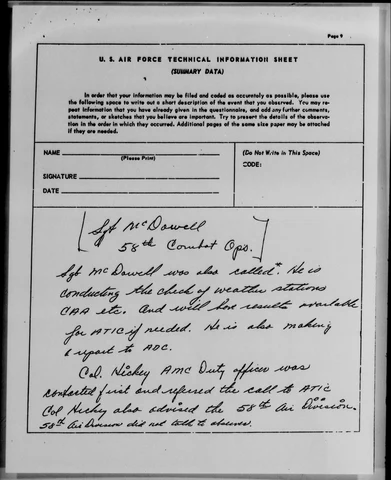 Page 9
U. S. AIR FORCE TECHNICAL INFORMATION SHEET
(SUMMARY DATA)
In order that your information may be filed and coded as accurately as possible, please use
the following space to write out a short description of the event that you observed. You may re-
peat information that you have already given in the questionnaire, and add any further comments,
statements, or sketches that you believe are important. Try to present the details of the observa-
tion in the order in which they occurred. Additional pages of the same size paper may be attached
if they are needed.
NAME
(Please Print)
SIGNATURE
DATE
(Do Not Write in This Space)
CODE:
[Sgt McDowell
58th Combat Ops.]
Sgt McDowell was also called*. He is
conducting the check of weather stations
CAA etc. And will have results available
for ATIC if needed. He is also making
a report to ADC.
Col. Hickey AMC Duty officer was
contacted first and referred the call to ATIC
Col Hickey also advised the 58th Air Division.
58th Air Division did not talk to observer.